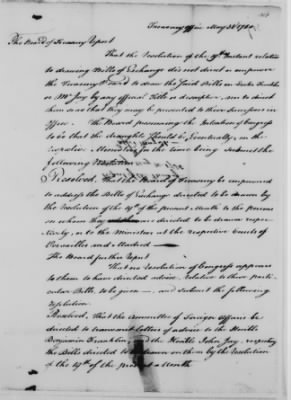 Treasury Office May 31st 1780
The Board of Treasury Report
That the Resolution of the 19th Instant relative
to drawing Bills of Exchange did not direct or empower
the Treasury Board to draw the said Bills on
or Mr Jay by any official Title or description, nor to direct
them so as that they may be presented to their Successors in
Office. The Board presuming the Intention of Congress
to be that the draughts should be eventually, on the
for the time being submit the
following
Resolved, That the Board of Treasury be empowered
to address the Bills of Exchange directed to be drawn by
the Resolution of the 19th of the present Month to the persons
on whom they are directed to be drawn respec
tively, or to the Minister at the respective Courts of
Versailles and Madrid
The Board further Report
That no Resolution of Congress appears
to them to have directed advice, relative to their parti
cular Bills, to be given and submit the following
Resolution
Resolved, that the Committee of Foreign Affairs be
directed to transmit letters of advice to the Honble
Benjamin Franklin, and the Honble John Jay, respecting
the Bills directed to be drawn on them by the Resolution
of the 19th of the present Month